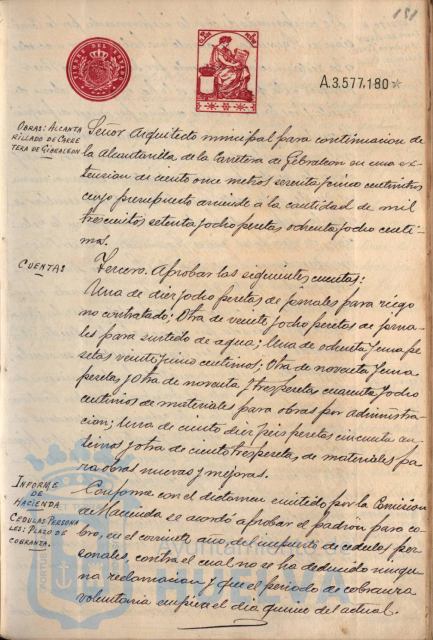 181
A.3.577.180
OBRAS: ALCANTA
RILLADO DE CARRE
TERA DE GIBRALEON
Señor Arquitecto municipal para continuacion de
la Alcantarilla de la Carretera de Gibraleon en una ex-
tension de ciento once metros sesenta y cinco centimetros
cuyo presupuesto asciende á la cantidad de mil
trescientas setenta y ocho pesetas ochenta y ocho centi-
mos.
CUENTAS
Tercero. Aprobar las siguientes cuentas:
Una de diez y ocho pesetas de jornales para riego
no contratado; Otra de veinte y ocho pesetas de jorna-
les para surtido de agua; Una de ochenta y una pe-
setas veinte y cinco centimos; Otra de noventa y una
pesetas y Otra de noventa y tres pesetas cuarenta y ocho
centimos de materiales para obras por administra-
cion; Una de ciento diez y seis pesetas cincuenta cen-
timos y otra de ciento tres pesetas de materiales pa-
ra obras nuevas y mejoras.
INFORME
DE
HACIENDA
CEDULAS PERSONA
LES: PLAZO DE
COBRANZA.
Conforme con el dictamen emitido por la Comision
de Hacienda se acordó aprobar el padrón para co-
bro, en el corriente año, del impuesto de cedulas per-
sonales, contra el cual no se ha deducido ningu-
na reclamacion y que el periodo de cobranza
voluntaria empiece el dia quince del actual.
Ayuntamiento de
HUELVA